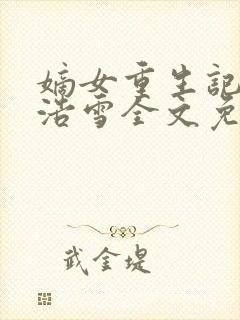 嫡女重生記
浩雪全文免
武金堤